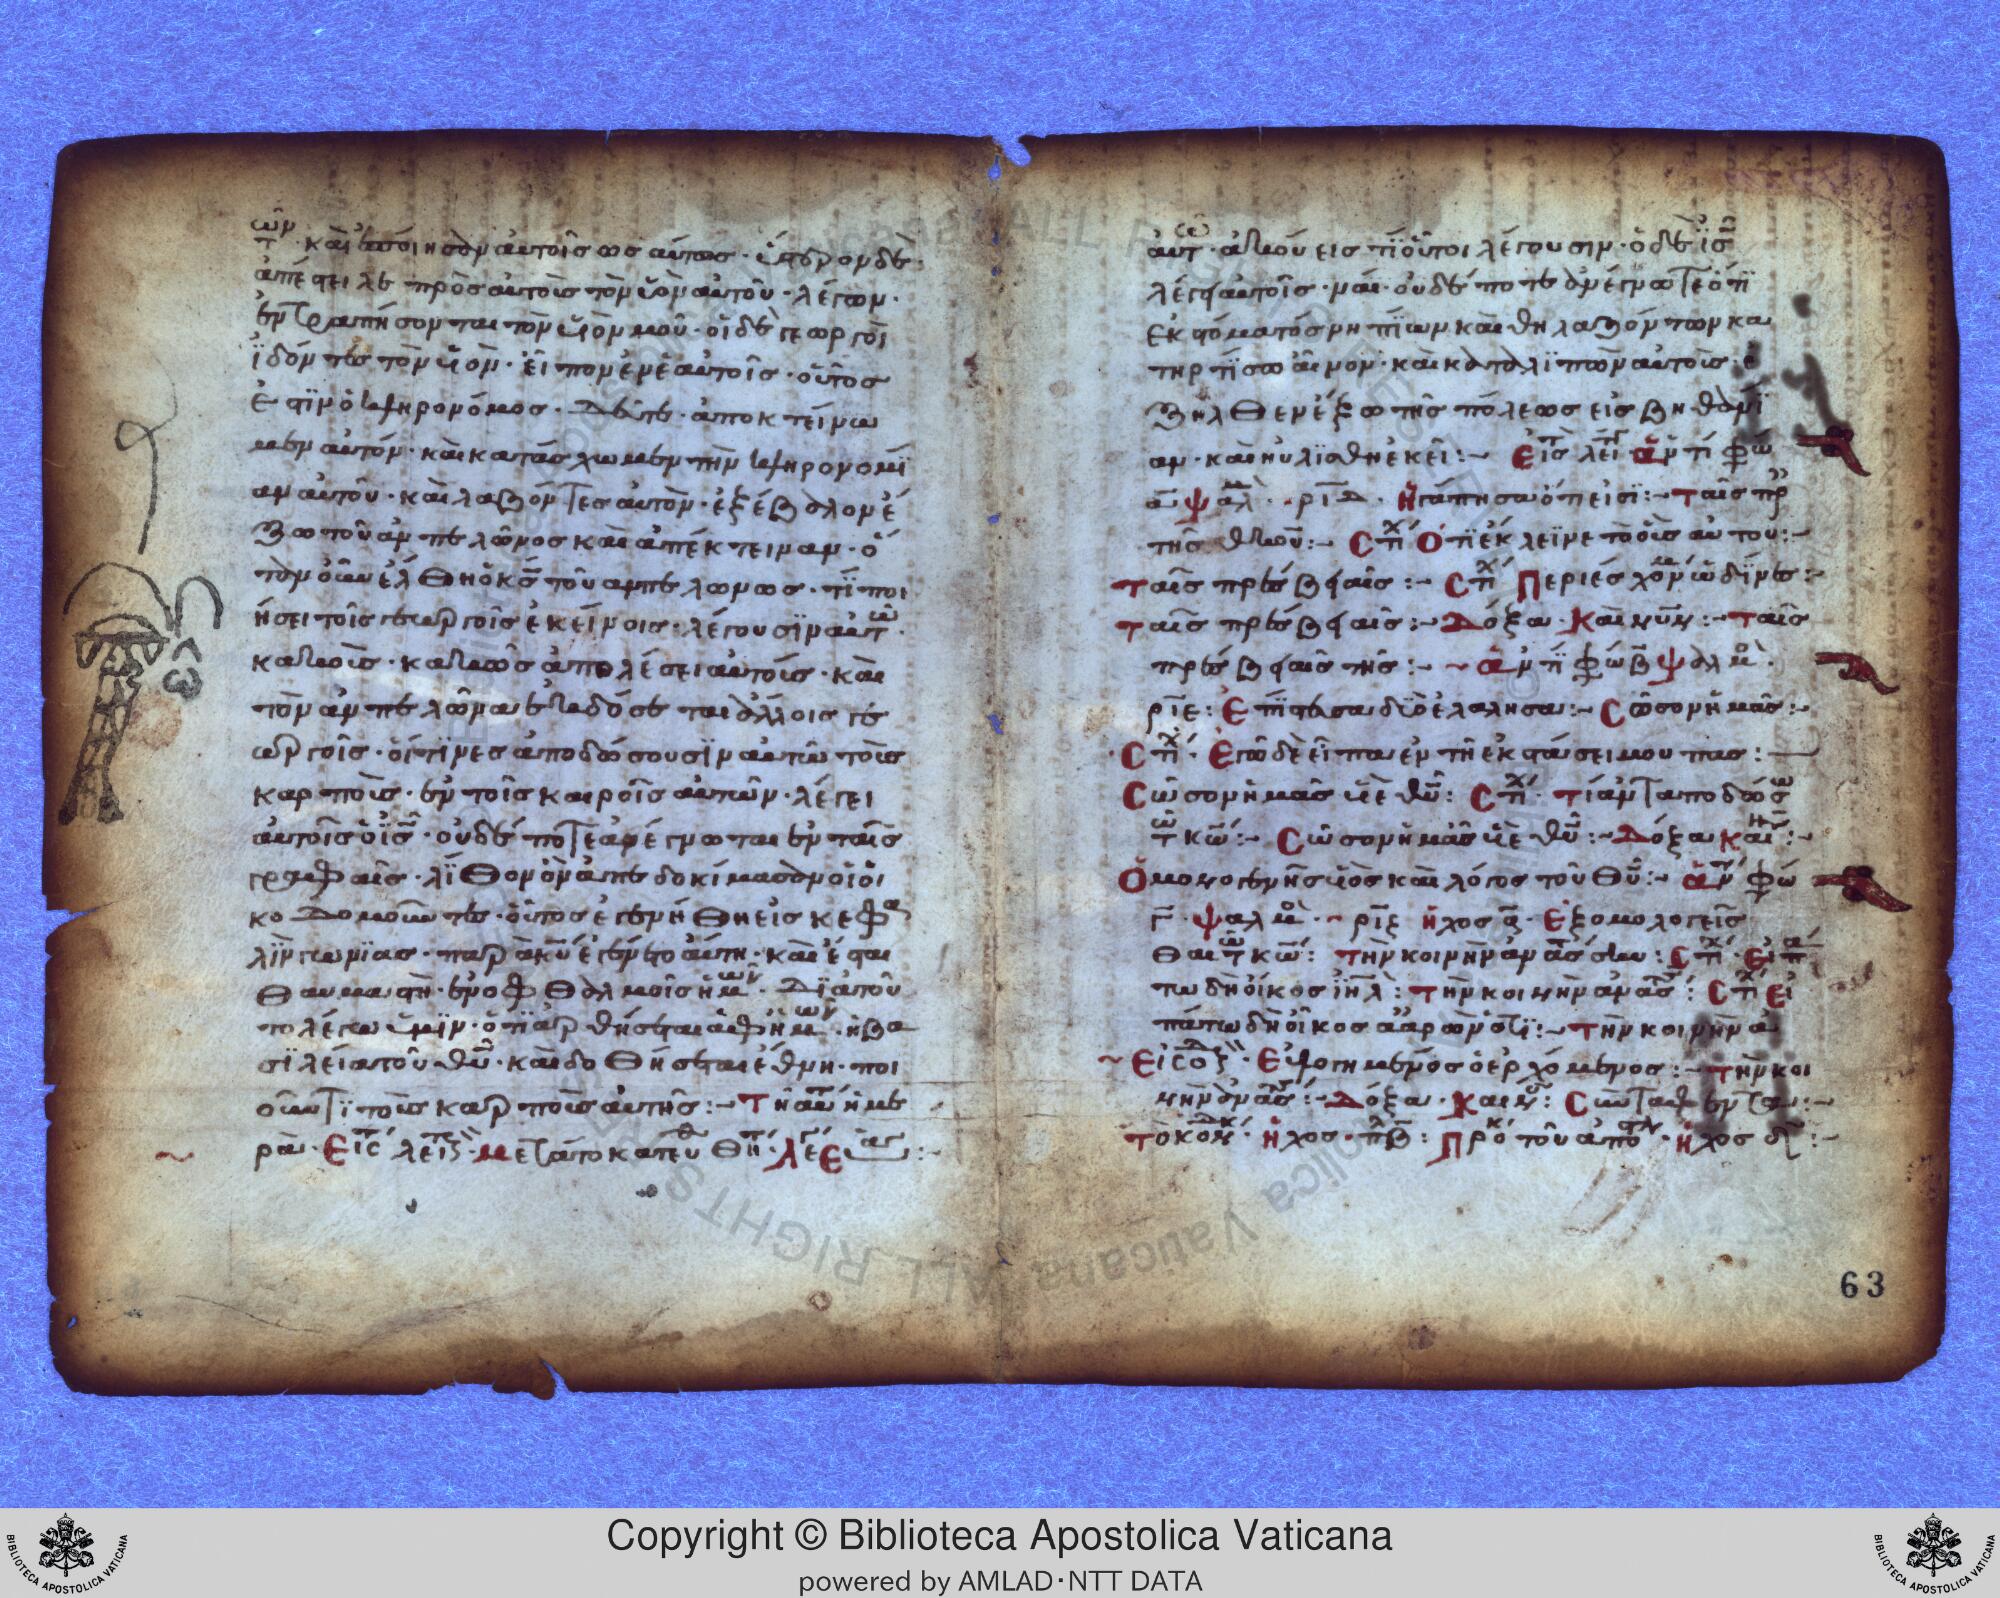 τῶν · καὶ ἐποίησαν αὐτοῖς ὡσαύτως · ὕστερον δὲ ·
ἀπέστειλε πρὸς αὐτοὺς τὸν υἱὸν αὐτοῦ · λέγων ·
ἐντραπήσονται τὸν υἱὸν μου · οἱ δὲ γεωργοὶ
ἰδόντες τὸν υἱὸν · εἶπον ἐν ἑαυτοῖς · οὗτος
ἐστὶν ὁ κληρονόμος · Δεῦτε · ἀποκτείνω
μεν αὐτόν · καὶ κατάσχωμεν τὴν κληρονομί
αν αὐτοῦ · καὶ λαβόντες αὐτὸν · ἐξέβαλον ἔ
ξω τοῦ ἀμπελῶνος καὶ ἀπέκτειναν · ὅ
ταν οὖν ἔλθη ὁ κς τοῦ αμπελωνος · τί ποι
ήσει τοῖς γεωργοῖς ἐκείνοις · λέγουσιν αὐτῶ ·
κακοὺς · κακῶς ἀπολέσει αὐτοὺς · καὶ
τὸν ἀμπελῶνα ἐκδόσει ἄλλοις γε
ωργοῖς · οἵτινες ἀποδώσουσιν αὐτῶ τοὺς
καρποὺς · ἐν τοῖς καιροῖς αὐτῶν · λέγει
αὐτοῖς ὁ ις · οὐδέποτε ἀνέγνωται ἐν ταῖς
γραφαῖς · λίθον ὃν ἀπεδοκίμασαν οἱ οἰ
κοδομοῦντες · οὗτος ἐγενήθη εἰς κεφα
λὴν γωνίας · παρὰ κυ ἐγένετο αὕτη · καὶ ἔστι
θαυμαστὴ · ἐν ὀφθαλμοῖς ἡμῶν · Διατοῦ
το λέγω ὑμῖν · ὅτι ἀρθήσεται ἀφ ἡμῶν · ἡ βα
σιλεία τοῦ θυ · καὶ δοθήσεται ἔθνη · ποι
οῦντι τοὺς καρποὺς αὐτῆς :- Τῆ αὐτῆ ἡμέ
ρα ·
αὐτῶ · ἀκούεις τί οὗτοι λέγουσιν · ὁ δὲ ις
λέγει αὐτοῖς · ναί · οὐδέποτε ἀνέγνωτε ὅτι
ἐκ στόματος νηπίων καὶ θηλαζόντων κα
τηρτίσω αἶνον · καὶ καταλιπὼν αὐτοὺς · ἐ
ξῆλθεν ἔξω τῆς πόλεως εἰς βηθανί
αν · καὶ ηὐλίσθη ἐκεῖ :- Εἰς λειτ ἀντιφώ
α ψαλ · ριδ · Ἠγάπησα ὅτι εἰσ :- Ταῖς πρ
τῆς θκου :- Στι Ὅτι ἔκλεινε τὸ οὖς αὐτοῦ :-
Ταῖς πρεσβείαις :- Στι Περιέσχον ὠδῖνες :-
Ταῖς πρεσβείαις :- Δόξα · Καὶ νῦν :- Ταῖς
πρεσβείαις τῆς :- ἀντιφώ β ψαλμ ·
ριε : Ἐπίστευσα διὸ ἐλάλησα :- Σῶσον ἡμᾶς :-
Στι · Ἐγὼ δὲ εἶπα ἐν τῆ ἐκστάσει μου πας :-
Σῶσον ἡμᾶς υἱὲ θυ : Στι · Τί ἀνταποδώσω
τῶ κω :- Σῶσον ἡμᾶς υἱὲ θυ :- Δόξα καὶ ν :-
Ὁ μονογενὴς υἱὸς καὶ λόγος τοῦ θυ :- ἀντιφώ
γ · ψαλμ · ριζ ἦχος α · Ἐξομολογεῖσ
θαι τῶ κω : Τὴν κοινὴν ἀνάστασιν : Στι · Εἰπά
τω δὴ οἶκος ιηλ : Τὴν κοινὴν ἀνάσ : Στι Εἰ
πάτω δὴ οἶκος ἀαρὼν ὅτι :- Τὴν κοινὴν ἀ
Εἴσοδ · Εὐλογημένος ὁ ἐρχόμενος :- Τὴν κοι
νὴν ἀνάσ :- Δόξα · Καὶ ν : Συνταφέντα :-
Τὸ κον · ἦχος · πλ β : Προκ τοῦ ἀποστλ · ἦχος δ :-
63
Copyright © Biblioteca Apostolica Vaticana
powered by AMLAD·NTT DATA
BIBLIOTECA APOSTOLICA VATICANA
BIBLIOTECA APOSTOLICA VATICANA